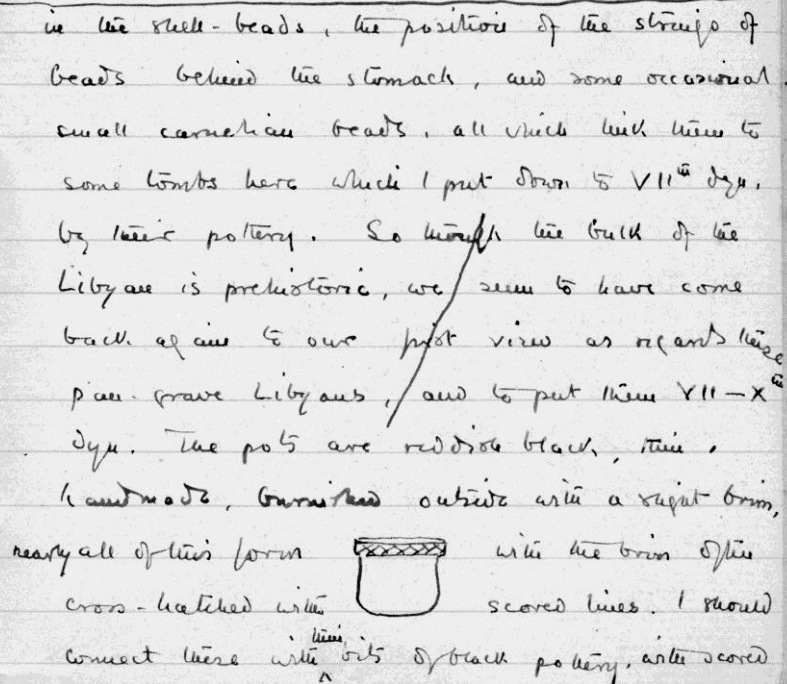 in the shell-beads, the position of the strings of
beads behind the stomach, and some occasional
small carnelian beads, all which link them to
some tombs here which I put down to VIIth dyn.
by their pottery. So though the bulk of the
Libyan is prehistoric, we seem to have come
back again to our first view as regards these
pan-grave Libyans, and to put them VII–Xth
dyn. The pots are reddish black, thin,
handmade, burnished outside with a slight brim,
nearly all of this form with the brim often
cross-hatched with scored lines. I should
connect these with thin bits of black pottery, with scored